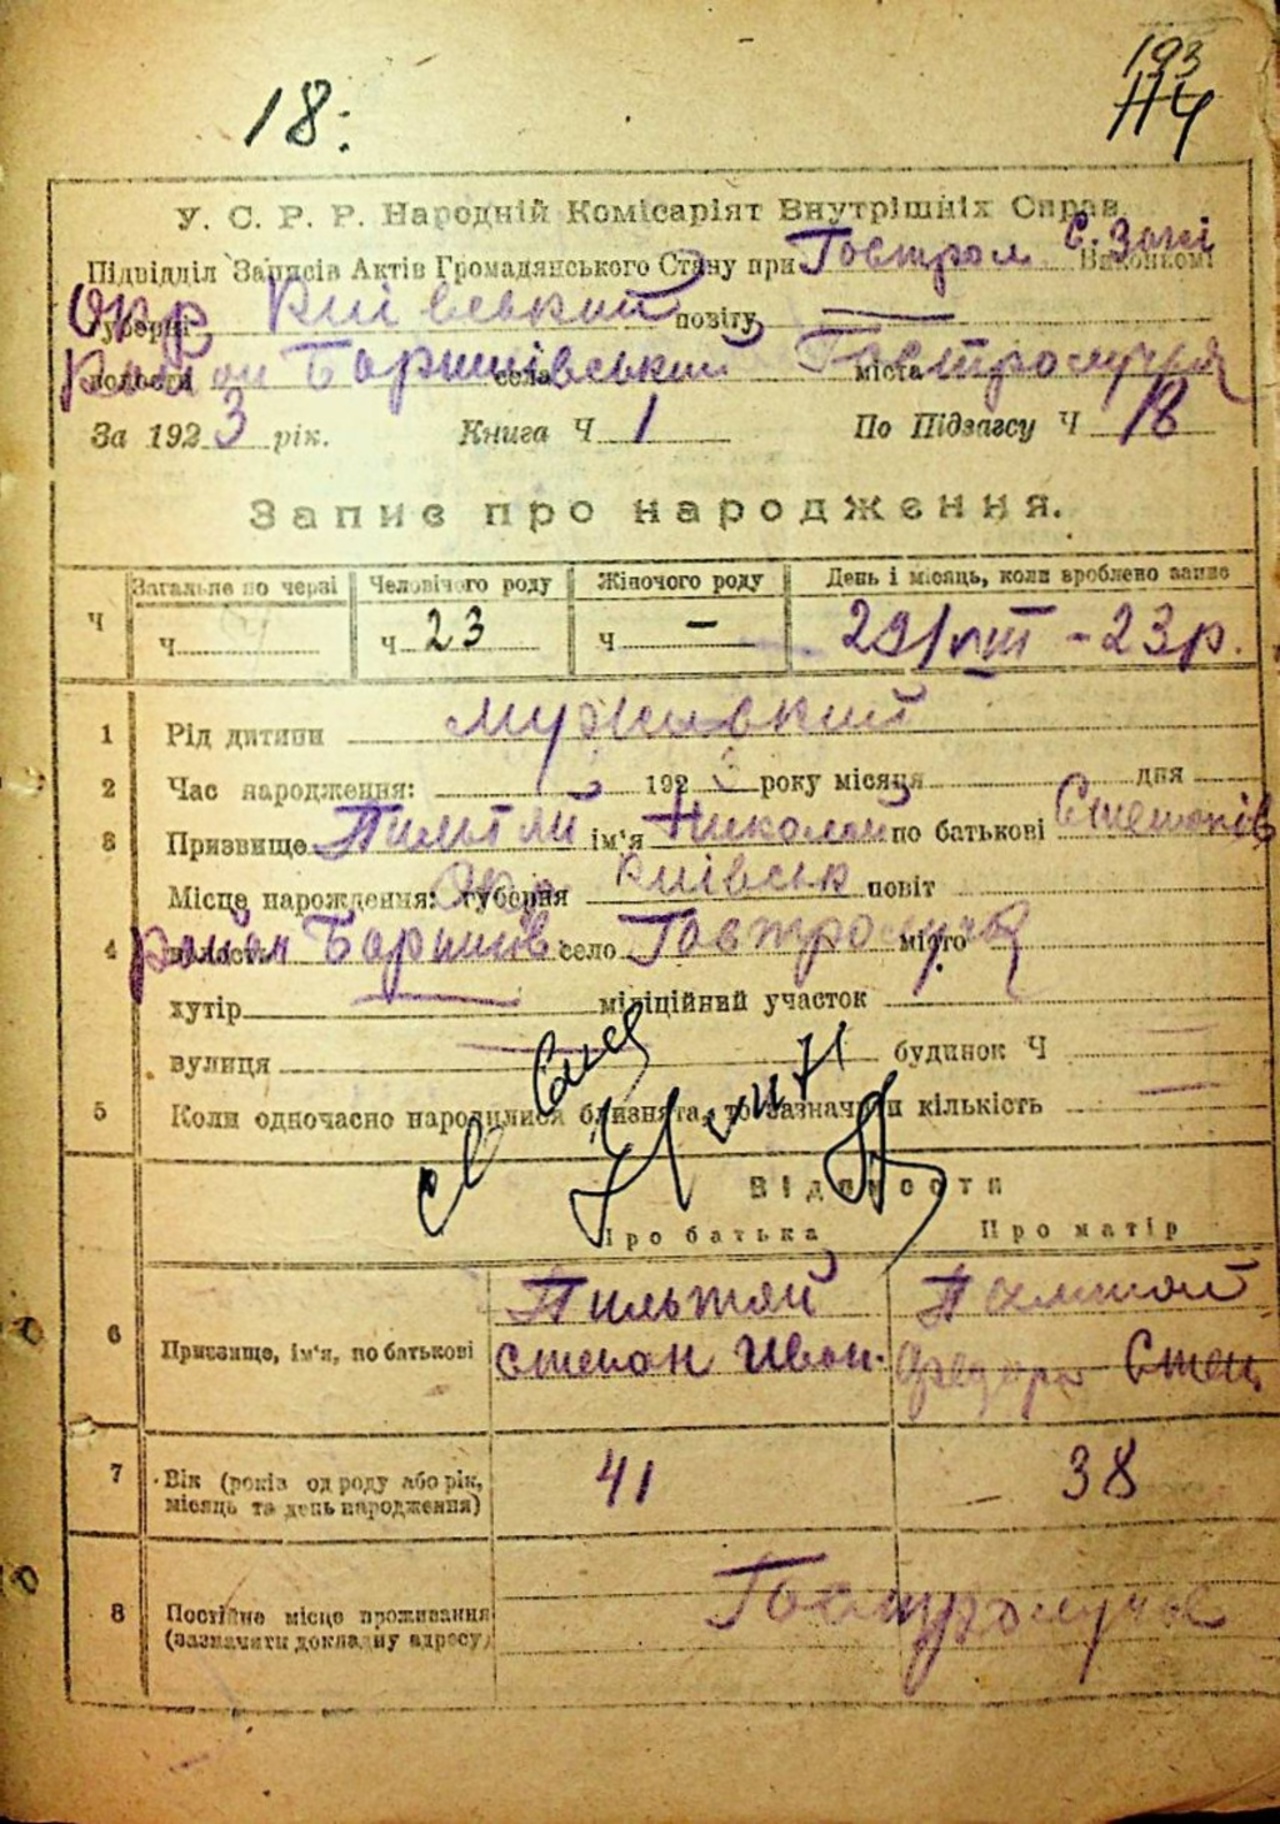 193
114
18.
У. С. Р. Р. Народній Комісаріят Внутрішніх Справ.
Підвідділ Записів Актів Громадянського Стану при Гостром С. Заги Виконкомі
Окр Губерні Київський повіту —
Район волости Баришівський села міста Гостролуччя
За 1923 рік. Книга Ч 1 По Підзагсу Ч 18
Запис про народження.
Ч Загальне по черзі Человічого роду Жіночого роду День і місяць, коли зроблено запис
Ч Ч 23 Ч — 29/VIII - 23 р.
1 Рід дитини Мужський
2 Час народження: 1923 року місяця дня
3 Призвище ім'я Николай по батькові Степанів
Місце народження: Окр губерня Київськ повіт
4 район волость Баришів. село Гостролуччя місто
хутір — міліційний участок
вулиця будинок Ч —
5 Коли одночасно народилися близнята, то зазначити кількість —
Відомости
Про батька Про матір
6 Призвище, ім'я, по батькові Пильтяй
Степан Иван. Федора Степ
7 Вік (років од роду або рік, місяць та день народження) 41 38
8 Постійне місце проживання (зазначити докладну адресу) Гостролуччя